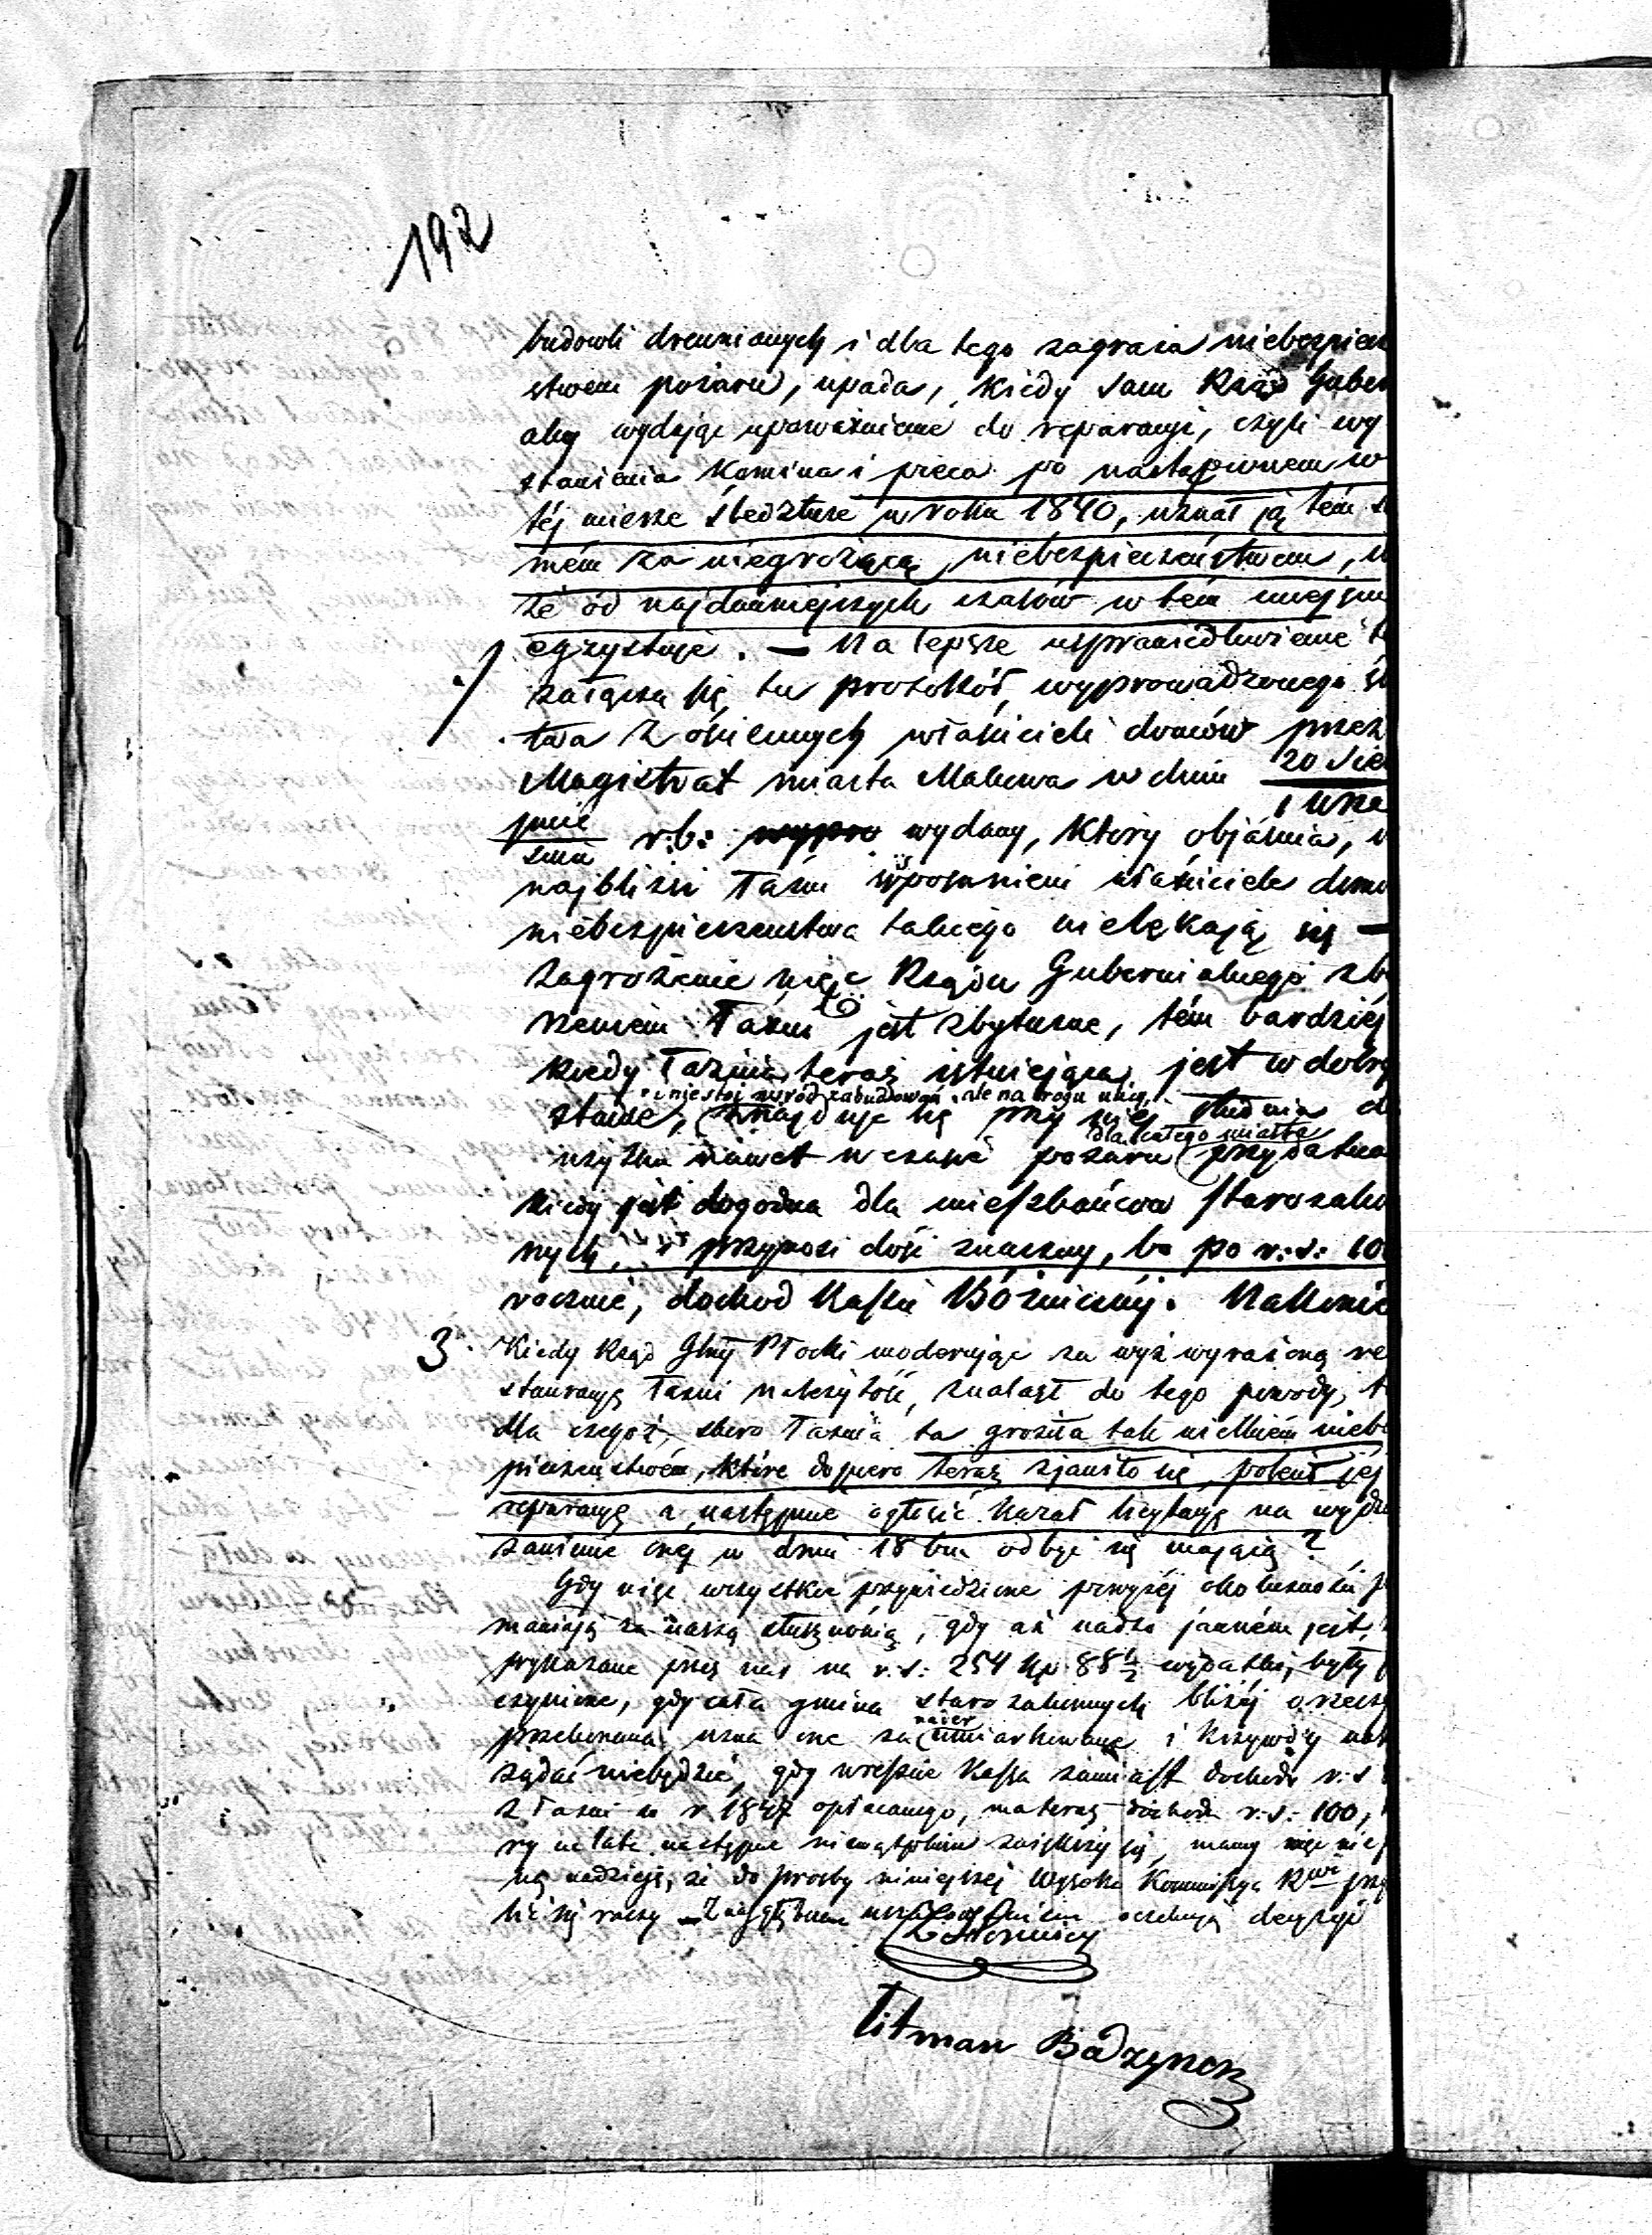 192
budowli drewnianych i dla tego zagraża niebezpiecz
stwem pożaru, upada, kiedy sam Rząd Guber
alny wydając upoważnienie do reparacyi, czyli wy
stawienia Komina i pieca po nastąpionem w
téj mierze śledztwie w roku 1840, uznał ją tém s
mém za niegrożącą niebezpieczeństwem,
że od najdawniejszych czasów w tém miejscu
egzystuje. — Na lepsze usprawiedliwienie t
a/ załącza się tu protokół, wyprowadzonego śl
twa z ościennych właścicieli domów przez
Magistrat miasta Makowa w dniu 20 Sier
1 Wrze
pnia
śnia r.b: wypro wydany, który objaśnia,
najbliżsi Łaźni wspomnieni właściciele domó
niebezpieczeństwa takiego nielękają się —
zagrożenie więc Rządu Gubernialnego zb
rzeniem Łaźni to jest zbyteczne, tém bardziéj
kiedy Łaźnia teraz istniejąca jest w dobry
i niestoi wśród zabudowań, ale na rogu ulicy,
stanie, znajduje się przy niej studnia d
dla całego miasta
użytku nawet w czasie pożaru przydatna
kiedy jest dogodna dla mieszkańców starozako
nych, i przynosi dość znaczny, bo po r:s: 10
rocznie, dochod Kassie Bóżniczéj. Nakonie
3. Kiedy Rząd Glny Płocki moderując za wyż wyrażoną re
stauracyą Łaźni należytość, znalazł do tego powody, t
dla czegoż, skoro Łaźnia ta groziła tak wielkiém niebe
pieczeństwém, które dopiero teraz zjawiło się, polecił jéj
reparacyą a następnie ogłosić kazał licytacyą na wydzie
żawienie onej w dniu 18 bm odbyć się mającą?
Gdy więc wszystkie przywiedzione powyżéj okoliczności p
mawiają za naszą słusznością, gdy aż nadto jawném jest,
wykazane przez nas na r.s: 254 kp 88½ wydatki, były
czynione, gdy cała gmina starozakonnych bliżéj o rzeczy
nader
przekonana, uzna one za umiarkowane i krzywdy nas
żądać niebędzie, gdy wreszcie Kassa zamiast dochodu r.s
z Łaźni w r 1847 opłacanego, ma teraz dochodu r.s: 100,
ry na lata następne niewątpliwie zwiększy się, mamy więc nie
ną nadzieję, że do prosby niniejszéj Wysoka Kommissya Rwa prz
lić się raczy — Z najgłębszem uszanowaniem oczekują decyzyi
Litman Bądzyner